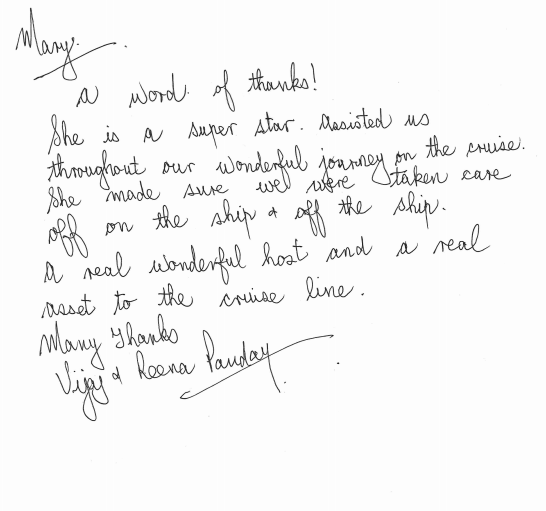 Mary.
A word of thanks!
She is a super star. Assisted us
throughout our wonderful journey on the cruise.
She made sure we were taken care
off on the ship & off the ship.
A real wonderful host and a real
asset to the cruise line.
Many Thanks
Vijay & Reena Panday